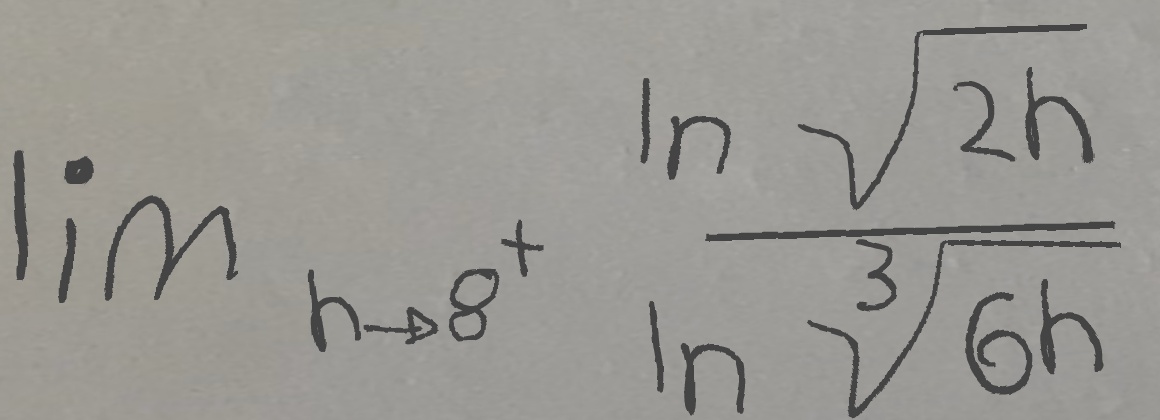 \lim_{h \to 8^+} \frac{\ln \sqrt{2h}}{\ln \sqrt[3]{6h}}